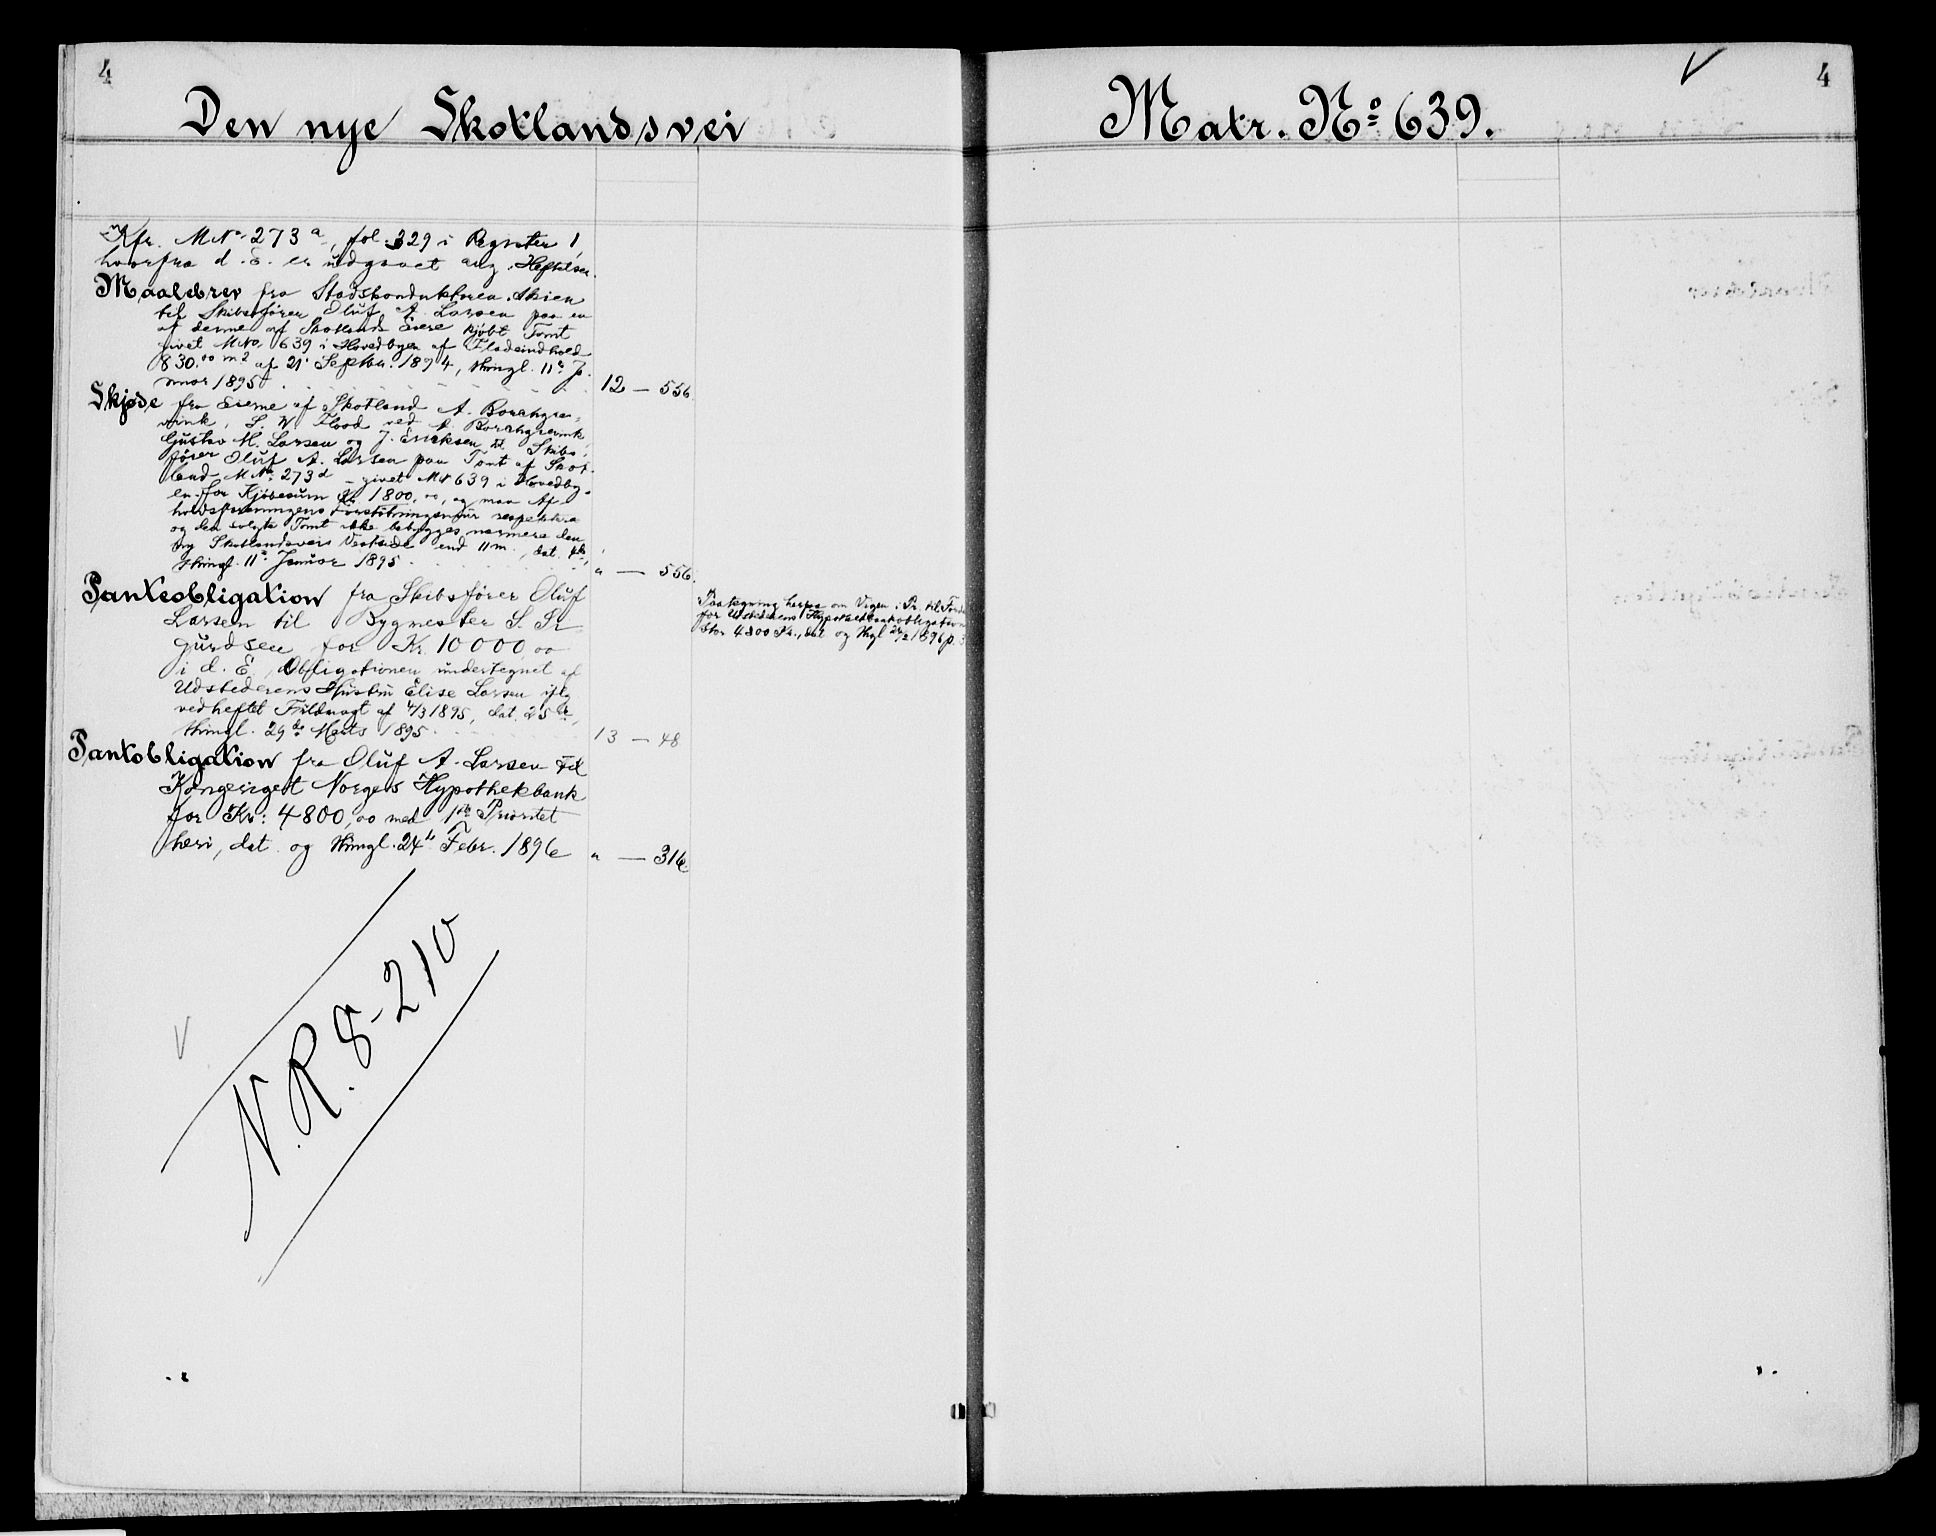 4
Den nye Skotlandsvei
Kfr. M No 273 a, fol. 329 i Register 1,
hvorfra d. E. er udgaaet ang. Heftelser.
Maalebrev fra Stadskonduktøren Skien
til Skibsfører Oluf A. Larsen paa en
af denne af Skotlands Eiere kjøbt Tomt
givet M No 639 i Hovedbyen af Fladeindhold
830.00 m2 af 21 Septbr. 1894, thingl. 11te Ja-
nuar 1895
12 — 556.
Skjøde fra Eierne af Skotland A. Borchgre-
vink, S. W. Flood ved A. Borchgrevink,
Gustav M. Larsen og J. Ericksen til Skibs-
fører Oluf A. Larsen paa Tomt af Skot-
land M No 273 d – givet M No 639 i Hovedby-
en for Kjøbesum Kr 1800,00, og maa Af-
holdsforeningens respektere
og den solgte Tomt ikke bebygges nærmere den
ny Skotlandsveis Vestside end 11 m., dat.
thingl. 11te Januar 1895.
" — 556.
Panteobligation fra Skibsfører Oluf
Larsen til Bygmester S. Si-
gurdsen for Kr. 10000,00
i d. E, Obligationen undertegnet af
Udstederens Hustru Elise Larsen iflg
vedheftet Fuldmagt af 4/3 1895, dat. 25de,
thingl. 29de Marts 1895.
13 — 48
Paategning herpaa om Vigen i Pr. til Forde
for Udstederens Hypothekbankobligation
stor 4800 Kr., dat og thgl 24/2 1896 p. 3
Pantobligation fra Oluf A. Larsen til
Kongeriget Norges Hypothekbank
for Kr: 4800,00 med 1ste Prioritet
heri, dat og thingl. 24de Febr. 1896
" — 316
N.R. 8-210
4
Matr. No 639.